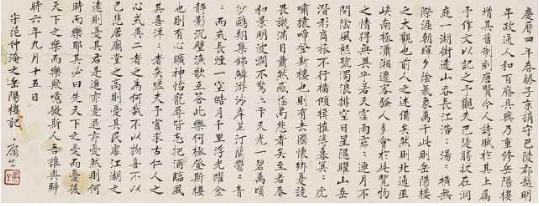 慶曆四年春滕子京謫守巴陵郡越明
年政通人和百廢具興乃重修岳陽樓
增其舊制刻唐賢今人詩賦於其上屬
予作文以記之予觀夫巴陵勝狀在洞
庭一湖銜遠山吞長江浩〻湯〻橫無
際涯朝暉夕陰氣象萬千此則岳陽樓
之大觀也前人之述備矣然則北通巫
峽南極瀟湘遷客騷人多會於此覽物
之情得無異乎若夫霪雨霏〻連月不
開陰風怒號濁浪排空日星隱曜山岳
潛形商旅不行檣傾楫摧薄暮冥〻虎
嘯猿啼登斯樓則有去國懷鄉憂讒
畏譏滿目蕭然感極而悲者矣至若春
和景明波瀾不驚上下天光一碧萬頃
沙鷗翔集錦鱗游泳岸芷汀蘭郁〻青
〻而或長煙一空皓月千里浮光耀金
靜影沉璧漁歌互答此樂何極登斯樓
也則有心曠神怡寵辱皆忘把酒臨風
其喜洋〻者矣嗟夫予嘗求古仁人之
心或異二者之為何哉不以物喜不以
己悲居廟堂之高則憂其民處江湖之
遠則憂其君是進亦憂退亦憂然則何
時而樂耶其必曰先天下之憂而憂後
天下之樂而樂歟噫微斯人吾誰與歸
時六年九月十五日
宋范仲淹之岳陽樓記